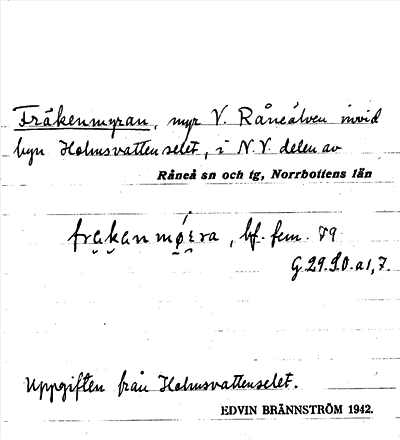 Fräkenmyran, myr V. Råneälven invid
byn Holmsvattenselet, i N.V. delen av
Råneå sn och tg, Norrbottens län
frakanmøi̯ra, bf. fem. 79
G.29.S.O.a1,7.
Uppgiften från Holmsvattenselet.
EDVIN BRÄNNSTRÖM 1942.